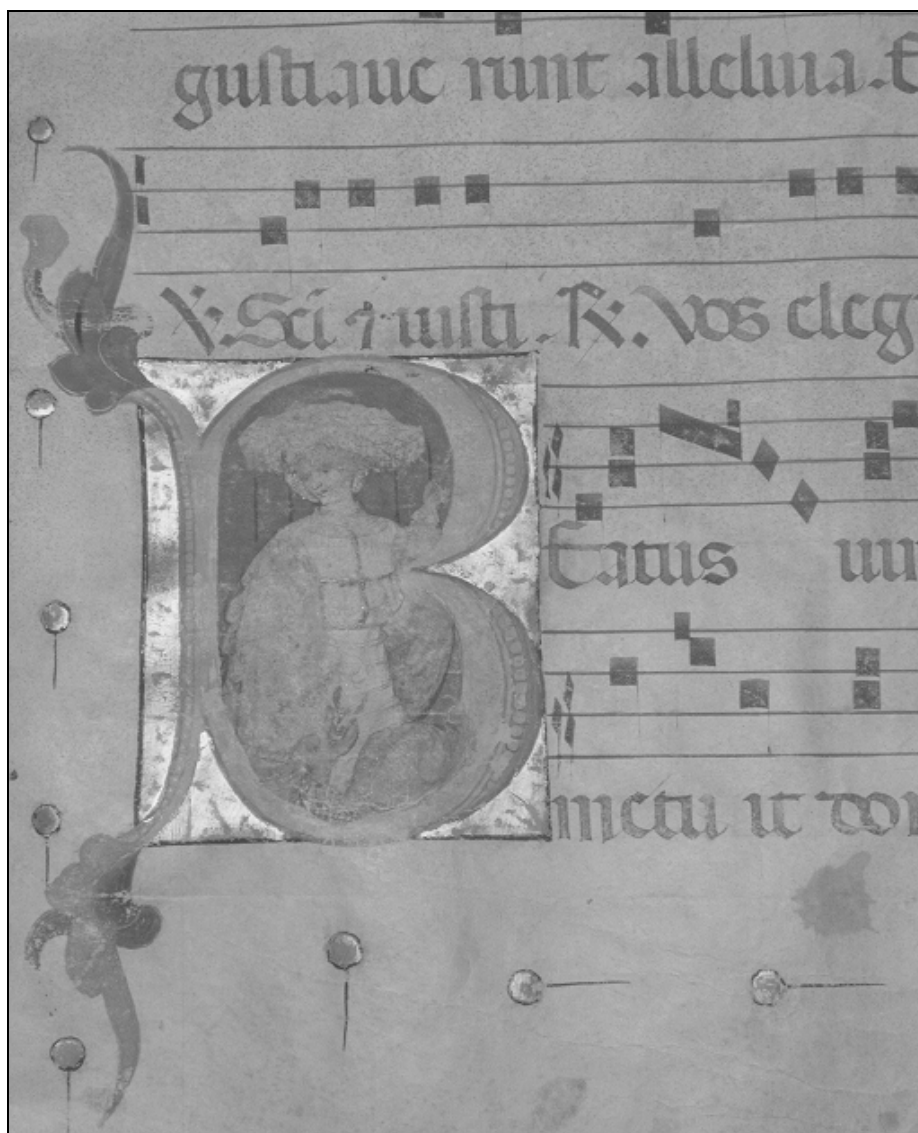 gustiaue runt alleluia. E
℣. Sci ⁊ iusti . ℟. Vos eleg
BEatus
metu it do